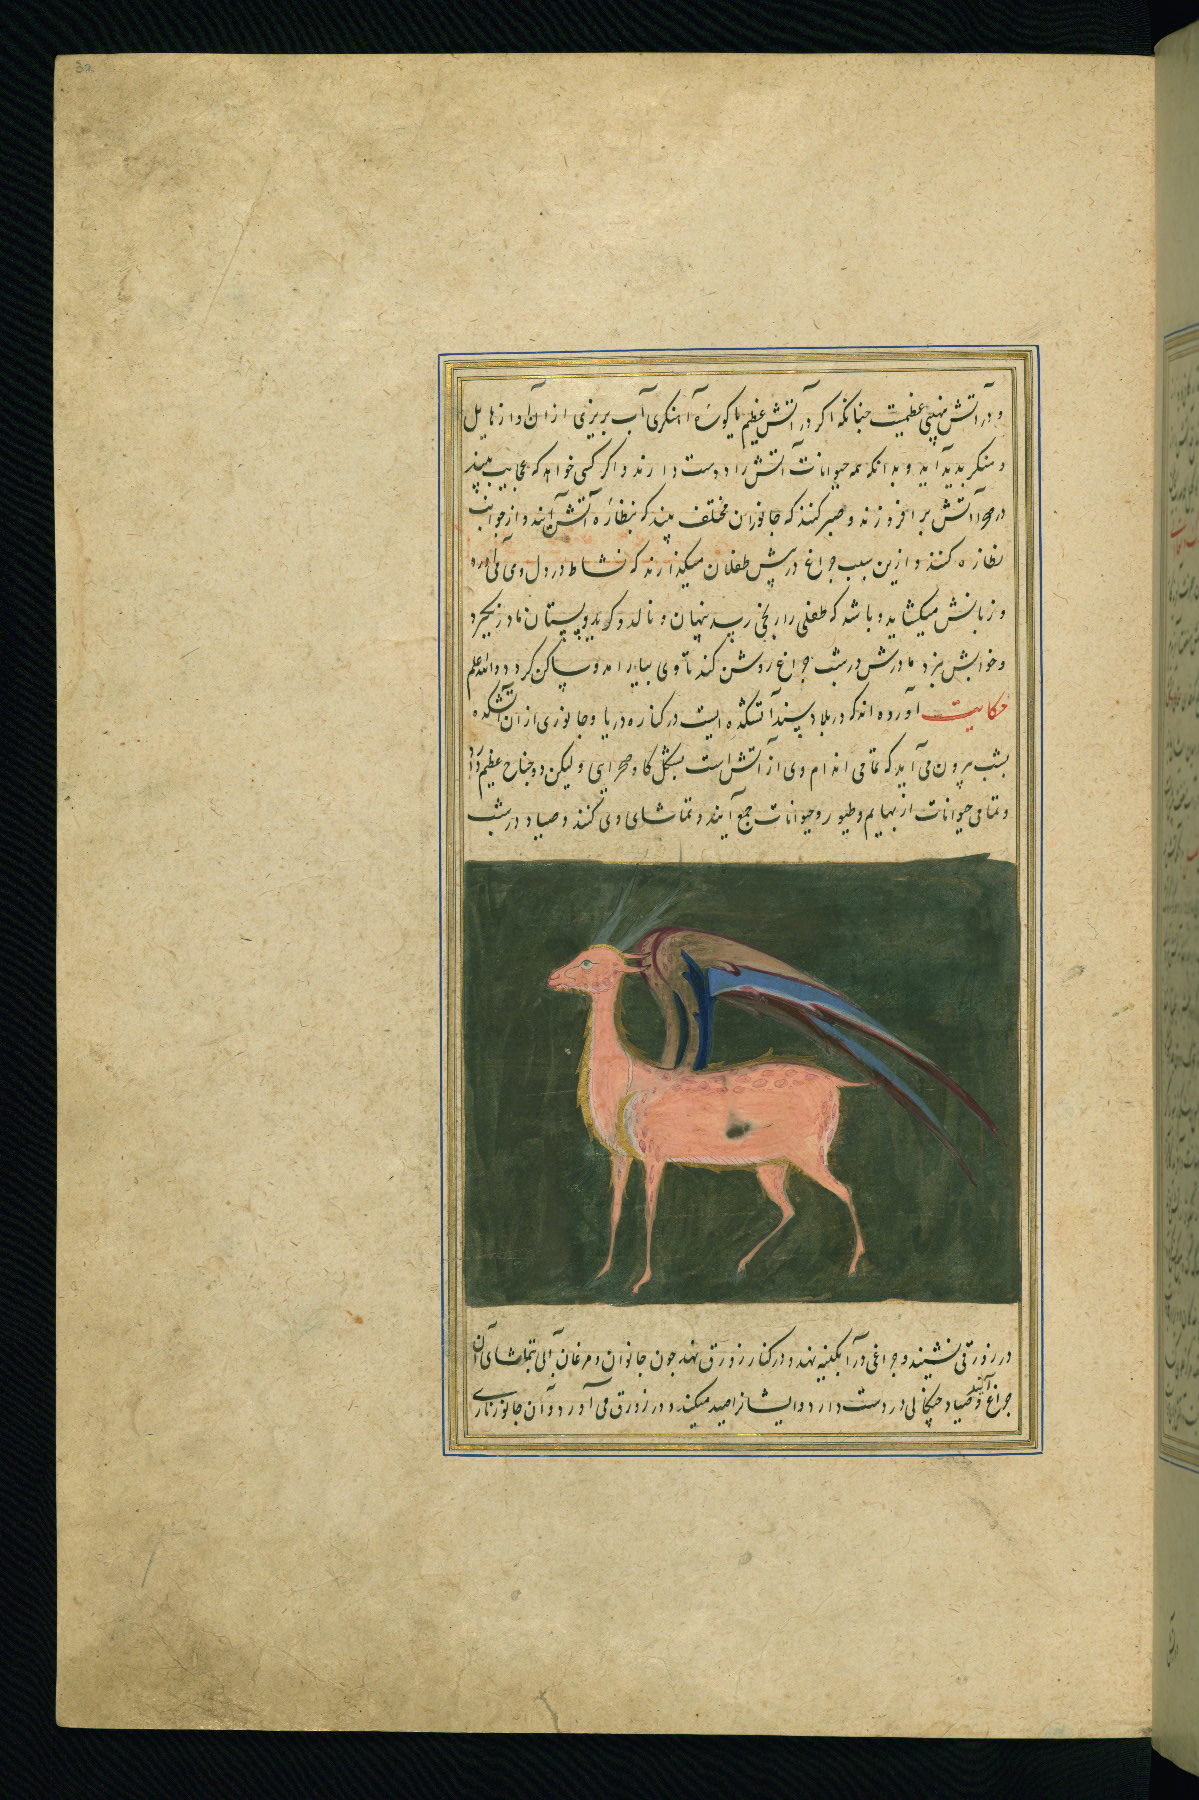 و در آتش نهیبی عظیمست چنانکه اکر در آتش عظیم یا کورۀ آهنکری آب بریزی از ان آواز هایل
و منکر بدید آید و بدانکه همه حیوانات آتش را دوست دارند و اکر کسی خواهد که عجایب بیند
در صحرا آتش بر افروزند و صبر کنند که جانوران مختلف بیند که بنظارۀ آتش آیند و از جوانب
نظاره کنند و ازین سبب چراغ در پیش طفلان میکذارند که نشاط در دل وی می آورد
و زبانش میکشاید و باشد که طفلی را رنجی رسد پنهان و نالد و کرید و پستان مادر نکیرد
و خوابش نبرد مادرش در شب چراغ روشن کند تا وی بیارامد و ساکن کردد والله اعلم
حکایت آورده اند که در بلاد سند آتشکده ایست در کناره دریا و جانوری از ان آتشکده
بشب بیرون می آید که تمامی اندام وی از آتش است بشکل کاو صحرایی و لیکن دو جناح عظیم دارد
و تمامی حیوانات از بهایم و طیور و حیوانات جمع آیند و تماشای وی کنند و صیاد در شب
در زورقی نشیند و چراغی در آبکینه نهد و در کنار زورق نهد چون جانوران و مرغان آبی بتماشای آن
چراغ آیند و صیاد در دست دارد و ایشانرا صید میکند و در زورق می آورد و آن جانور ناری